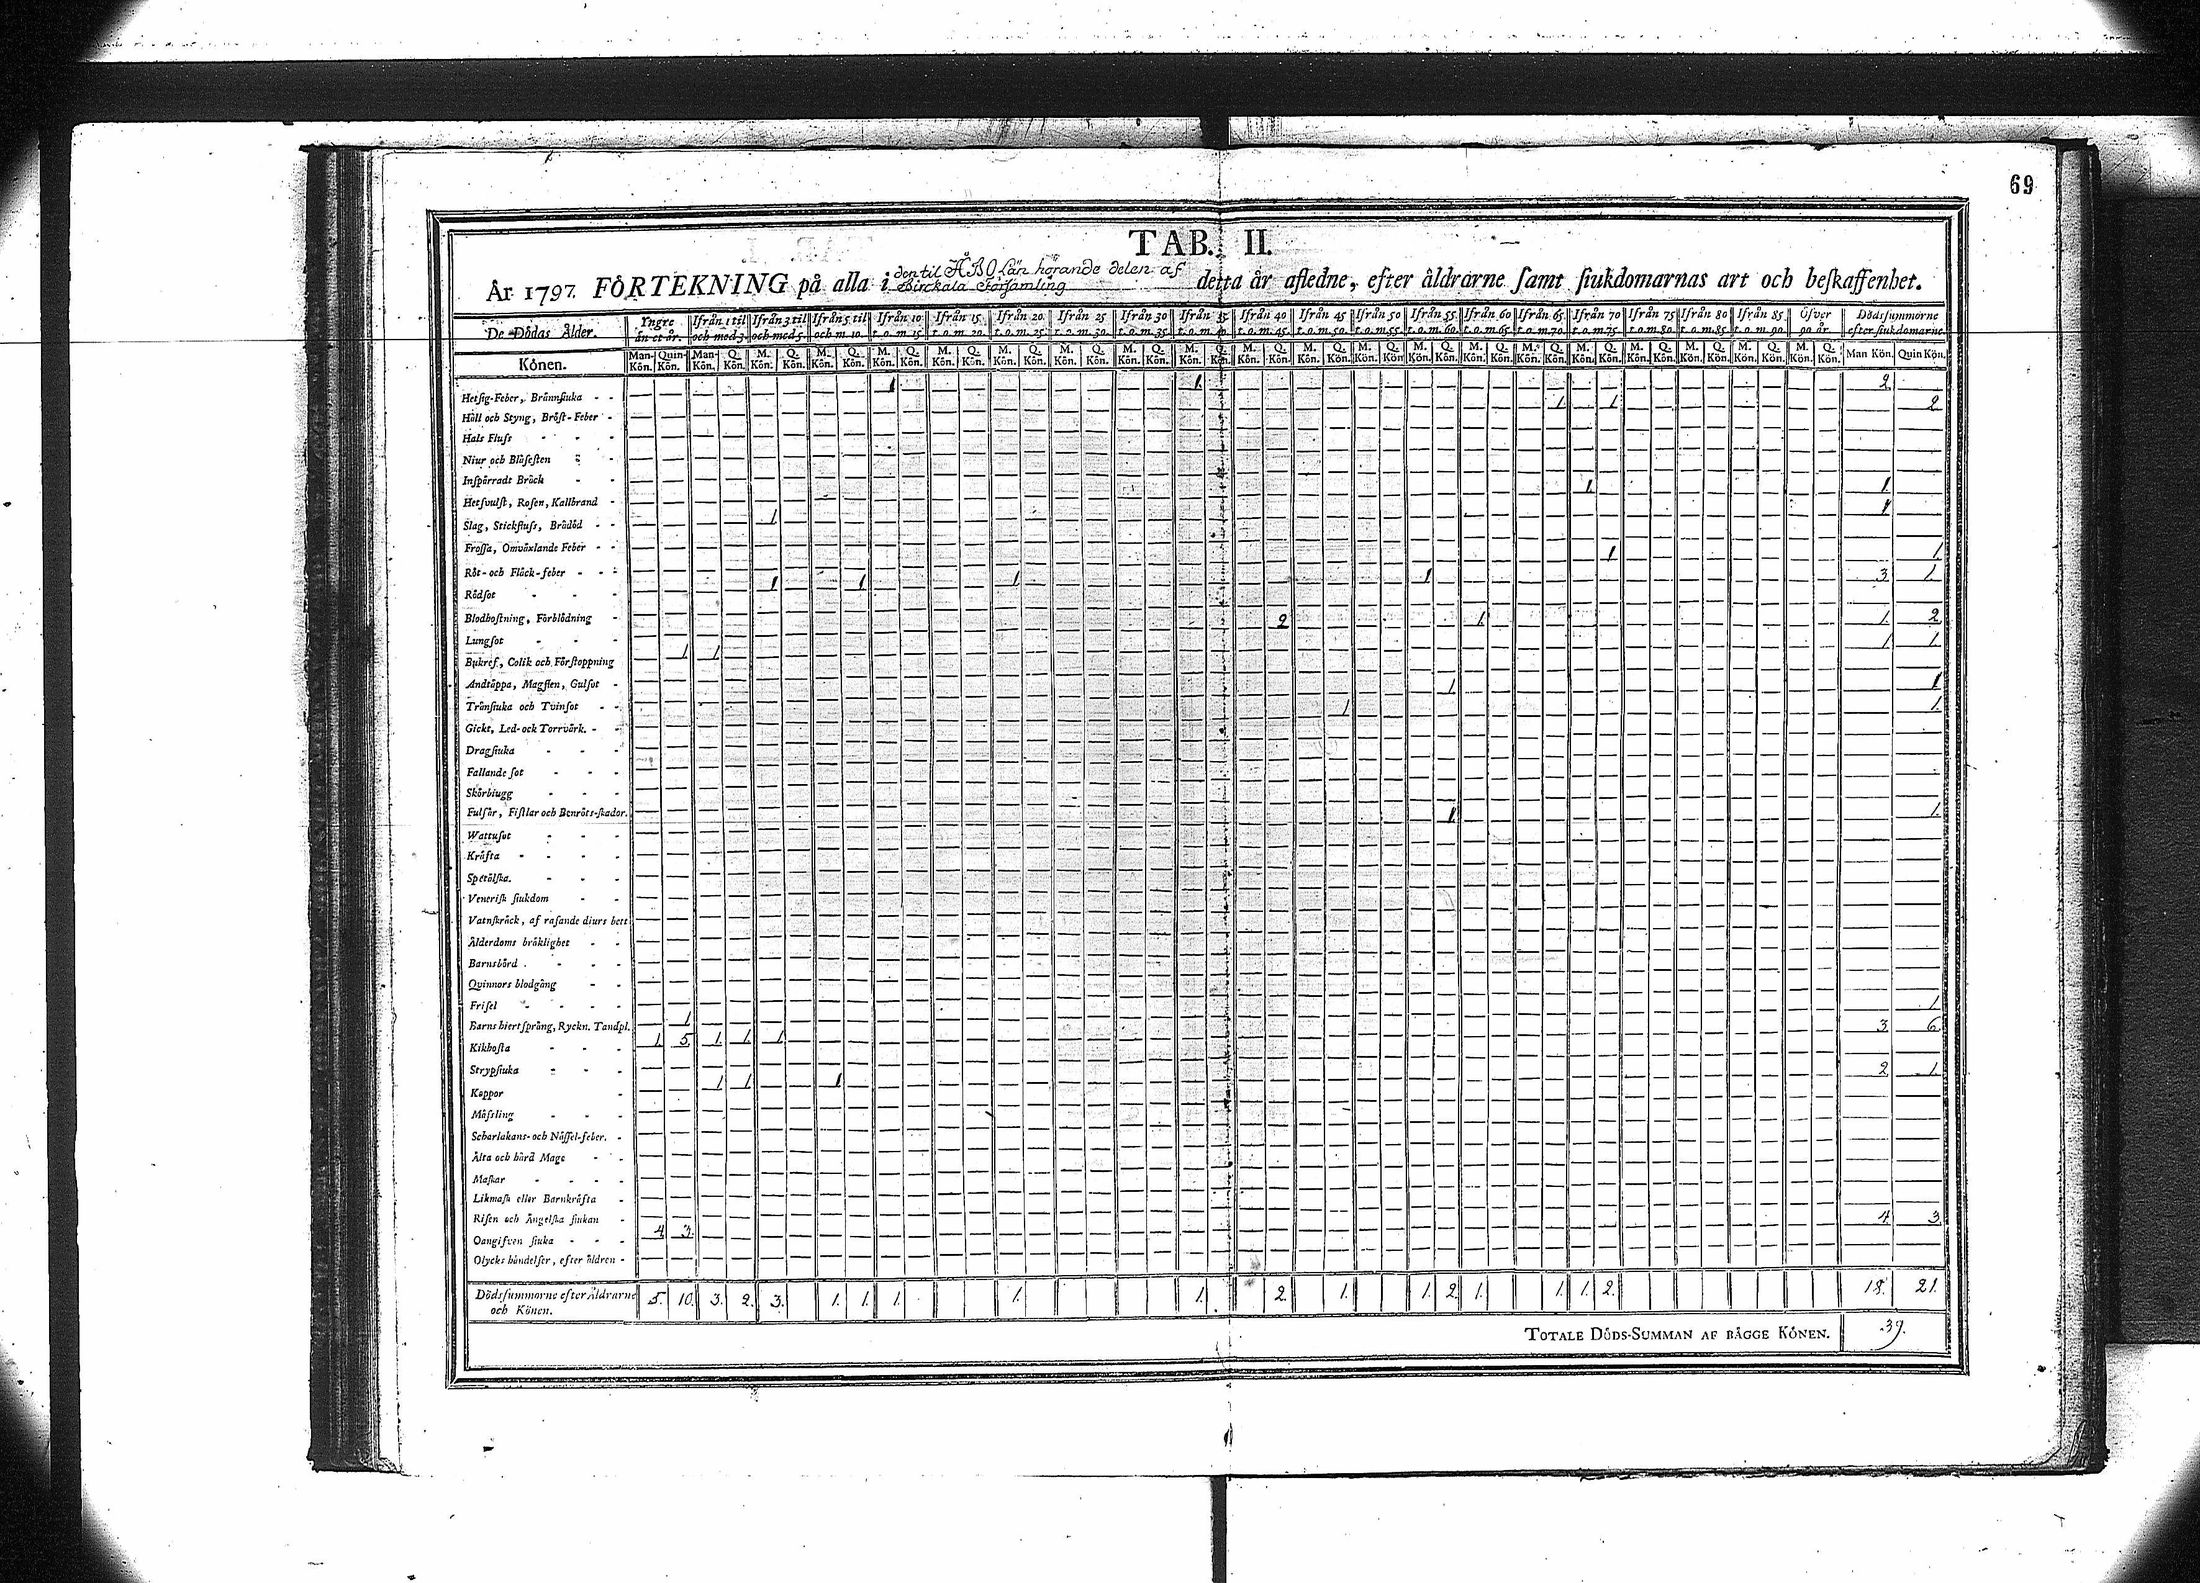 69
TAB. II.
År 1797. FÖRTEKNING på alla i den til ÅBO Län hörande delen af Birckala Församling detta år afledne, efter åldrarne samt siukdomarnas art och beskaffenhet.
De Dödas Ålder. Yngre än et år. Ifrån 1 til och med 3. Ifrån 3 til och med 5. Ifrån 5 til och m. 10. Ifrån 10 t.o.m. 15 Ifrån 15 t.o.m. 20. Ifrån 20 t.o.m. 25 Ifrån 25 t.o.m. 30. Ifrån 30 t.o.m. 35. Ifrån 35 t.o.m. 40. Ifrån 40 t.o.m. 45. Ifrån 45 t.o.m. 50. Ifrån 50 t.o.m. 55. Ifrån 55 t.o.m. 60. Ifrån 60 t.o.m. 65. Ifrån 65 t.o.m. 70. Ifrån 70 t.o.m. 75. Ifrån 75 t.o.m. 80. Ifrån 80 t.o.m. 85. Ifrån 85 t.o.m. 90. Öfver 90 år. Dödssummorne efter siukdomarne.
Könen. Man-Kön. Quin-Kön. Man-Kön. Q. Kön. M. Kön. Q. Kön. M. Kön. Q. Kön. M. Kön. Q. Kön. M. Kön. Q. Kön. M. Kön. Q. Kön. M. Kön. Q. Kön. M. Kön. Q. Kön. M. Kön. Q. Kön. M. Kön. Q. Kön. M. Kön. Q. Kön. M. Kön. Q. Kön. M. Kön. Q. Kön. M. Kön. Q. Kön. M. Kön. Q. Kön. M. Kön. Q. Kön. M. Kön. Q. Kön. M. Kön. Q. Kön. M. Kön. Q. Kön. M. Kön. Q. Kön. Man Kön. Quin Kön.
Hetsig-Feber, Brännsiuka 1 1. 2
Håll och Styng, Bröst-Feber 1 1 2
Hals Fluss
Niur och Blåsesten
Inspärradt Bråck
Hetsvulst, Rosen, Kallbrand 1. 1.
Slag, Stickfluss, Brådöd 1 1
Frossa, Omväxlande Feber
Röt- och Fläck-feber 1 1.
Rödsot 1 1 1 1 3 1
Blodhostning, Förblödning
Lungsot 2 1. 1. 2
Bukref, Colik och Förstoppning 1 1. 1 1.
Andtäppa, Magsten, Gulsot 1 1
Trånsiuka och Tvinsot 1 1.
Gickt, Led- ock Torrvärk.
Dragsiuka
Fallande sot
Skörbiugg
Fulsår, Fistlar och Benröts-skador. 1. 1.
Wattusot
Kräfta
Spetälska.
Venerisk siukdom
Vatnskräck, af rasande diurs bett
Ålderdoms bräklighet
Barnsbörd
Quinnors blodgång
Frisel
Barns hiertsprång, Ryckn. Tandpl. 1 1
Kikhosta 1. 5. 1. 1. 1. 3 6.
Strypsiuka
Koppor 1 1 1 2 1.
Mässling
Scharlakans- och Nässel-feber.
Älta och hård Mage
Maskar
Likmask eller Barnkräfta
Risen och Ängelska siukan
Oangifven siuka 4 3. 4. 3
Olycks händelser, efter åldren
Dödssummorne efter Åldrarne och Könen. 5. 10. 3. 2. 3. 1. 1. 1. 1. 1. 2. 1. 1. 2. 1. 1. 1. 2. 18. 21.
TOTALE DÖDS-SUMMAN AF BÄGGE KÖNEN. 39.